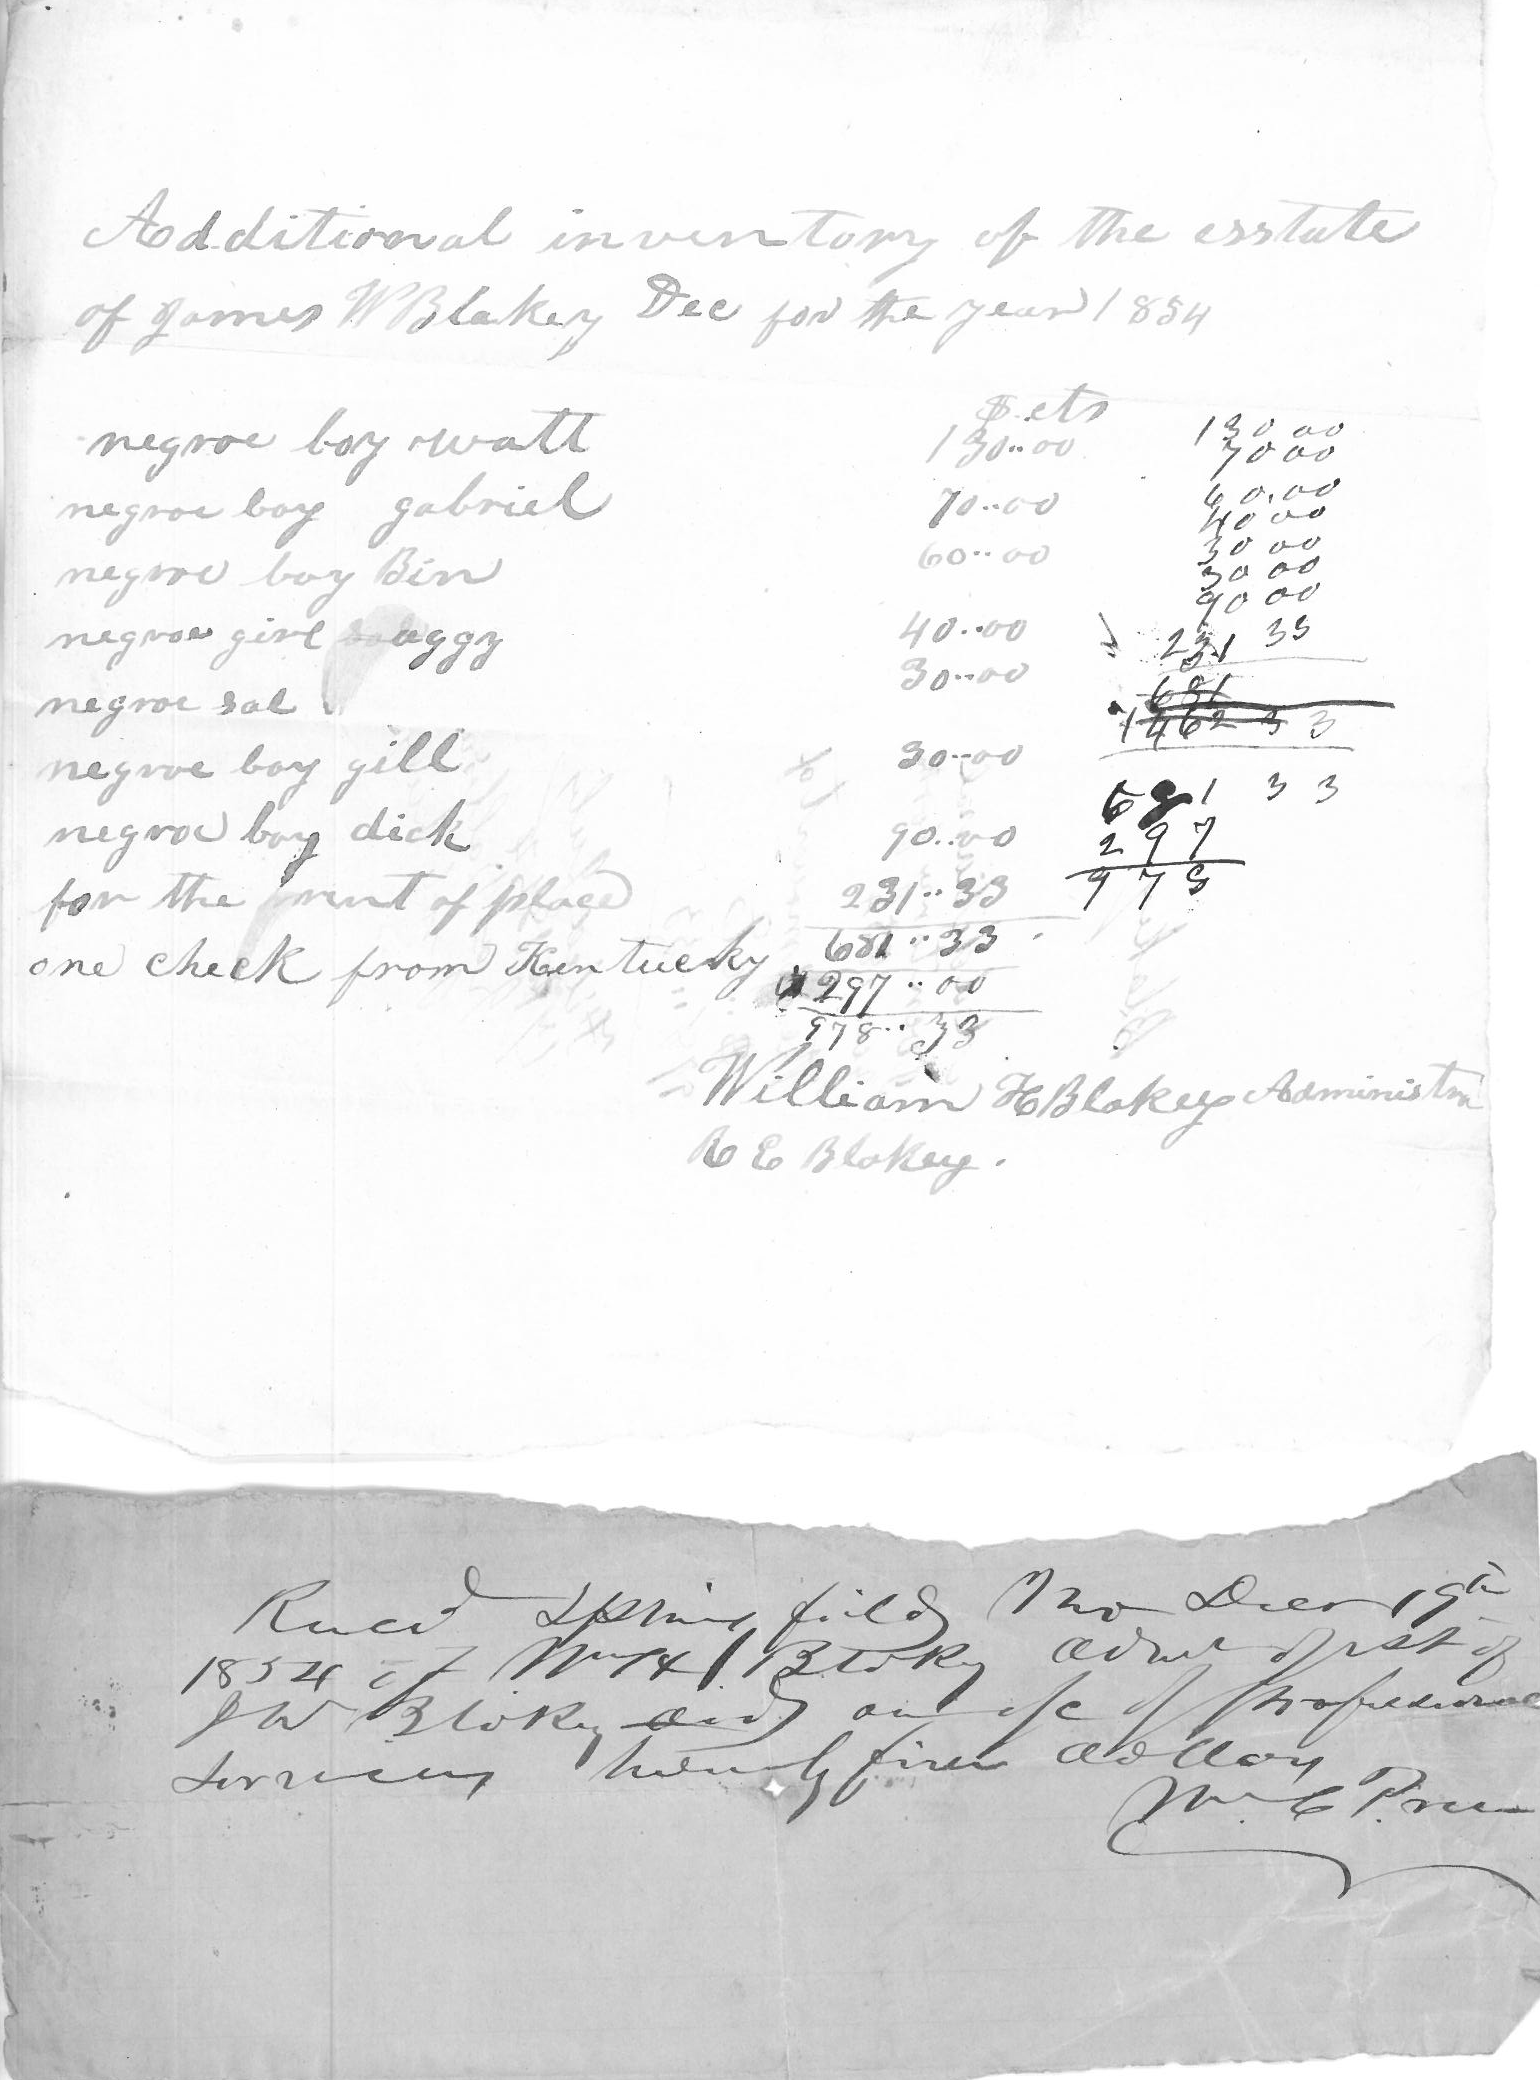 Additional inventory of the esstate
of James W Blakey Dec for the year 1854
$ cts
negroe boy watt 130..00
negroe boy gabriel 70..00
negroe boy Bin 60..00
negroe girl aggy 40..00
negroe sal 30..00
negroe boy gill 30..00
negroe boy dick 90..00
for the rent of place 231..33
681..33
one check from Kentucky 297..00
978..33
130 00
70 00
60.00
40 00
30 00
30 00
90 00
231 33
681
1462 33
681 33
297
978
William H Blakey Administra
R E Blakey.
Recd Springfield Mo Decr 19th
1854 of Wm H Blakey admr of est of
J W Blakey decd on a/c of professional
services twenty five dollars
Wm. C. Price